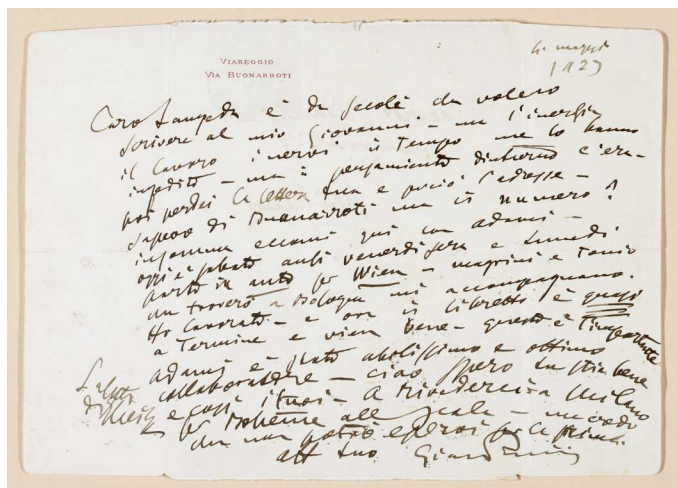 VIAREGGIO
VIA BUONARROTI
4 maggio
1923
Caro è da secoli da volevo
scrivere al mio Giovanni — ma l'inerzia
il lavoro i nervi il tempo me lo hanno
impedito — ma il pensiamento dintorno c'era —
poi perdei la lettera tua e perciò l'adresse —
sapevo di Buonarroti ma il numero?
insomma eccomi qui con Adami —
oggi è sabato anzi venerdì sera e lunedì
parto in auto per Wien — Magrini e Tonio
che troverò a Bologna mi accompagnano.
Ho lavorato — e ora il libretto è quasi
a termine e viene bene — questo è l'importante
Adami è stato abilissimo e ottimo
collaboratore — ciao spero tu stia bene
e così i tuoi — A rivederci a Milano
per Bohème alla Scala — ma credo
che non potrò esserci per la prima.
aff tuo Giacomo Puccini
Saluti
di